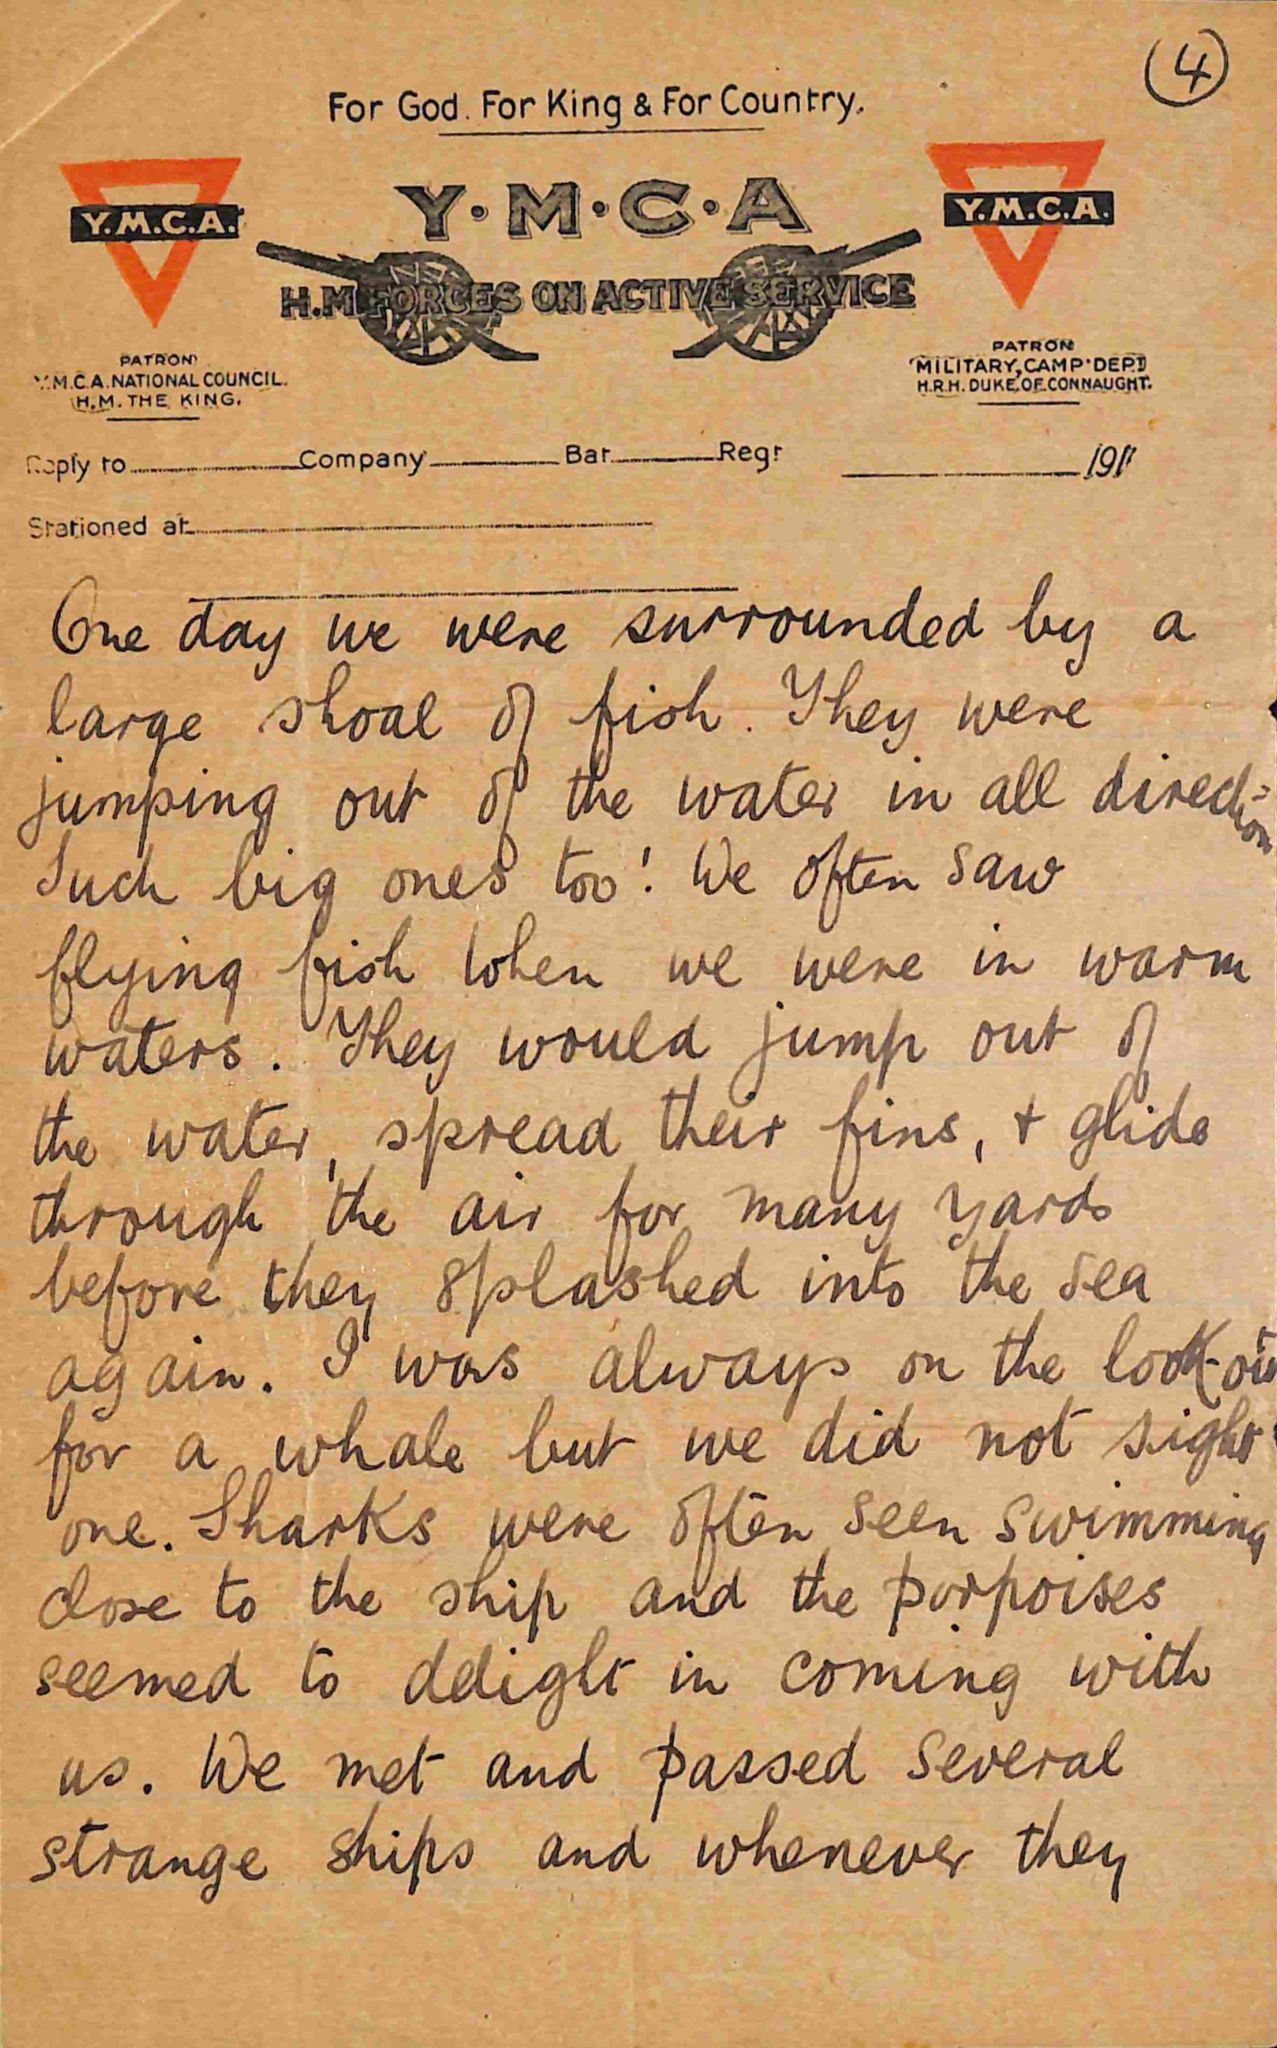 (4)
For God. For King & For Country.
Y.M.C.A.
Y·M·C·A
Y.M.C.A.
H.M FORCES ON ACTIVE SERVICE
PATRON
Y.M.C.A. NATIONAL COUNCIL.
H.M. THE KING.
PATRON
MILITARY CAMP DEPT
H.R.H. DUKE OF CONNAUGHT.
Reply to Company Bat Regt 191
Stationed at
One day we were surrounded by a
large shoal of fish. They were
jumping out of the water in all direction
Such big ones too! We often saw
flying fish when we were in warm
waters. They would jump out of
the water, spread their fins, + glide
through the air for many yards
before they splashed into the sea
again. I was always on the look-out
for a whale but we did not sight
one. Sharks were often seen swimming
close to the ship and the porpoises
seemed to delight in coming with
us. We met and passed several
strange ships and whenever they